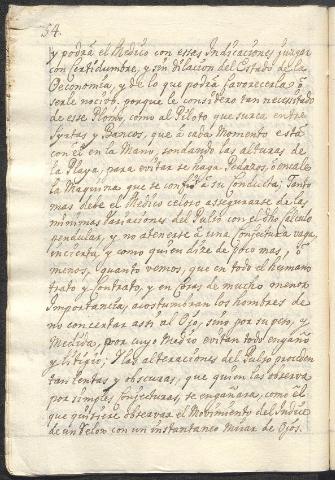 54.
y podrá el Medico con essas Indicaciones juzgar
con Certidumbre, y sin dilacion del Estado de la
Oeconomia, y de lo que podrá favorecerla ò
serle nocivo, porque le considero tan necessitado
de esse Plomo, como al Piloto que surca entre
Syrtes y Bancos, que à cada Momento está
con él en la Mano, sondando las alturas de
la Playa, para evitar se haga Pedazos, ò encalle
la Maquina que se confió à su Conducta; Tanto
mas debe el Medico celoso assegurarse de las
minimas Variaciones del Pulso con el dho Calculo
pendular, y no atenerse à una Conjectura vaga,
incierta, y como quien dize de poco mas, ò
menos, quanto vemos, que en todo el humano
trato y Contrato, y en Cosas de mucho menor
Importancia, acostumbran los hombres de
no concertar assi al Ojo, sino por su peso, y
Medida, por cuyo Medio evitan todo engaño
y Litigio; Y las alteraciones del Pulso proceden
tan lentas y obscuras, que quien las observa
por simples Conjecturas, se engañara, como él
que quisiere observar el Movimiento del Indice
de un Relox con un instantaneo mirar de Ojos.